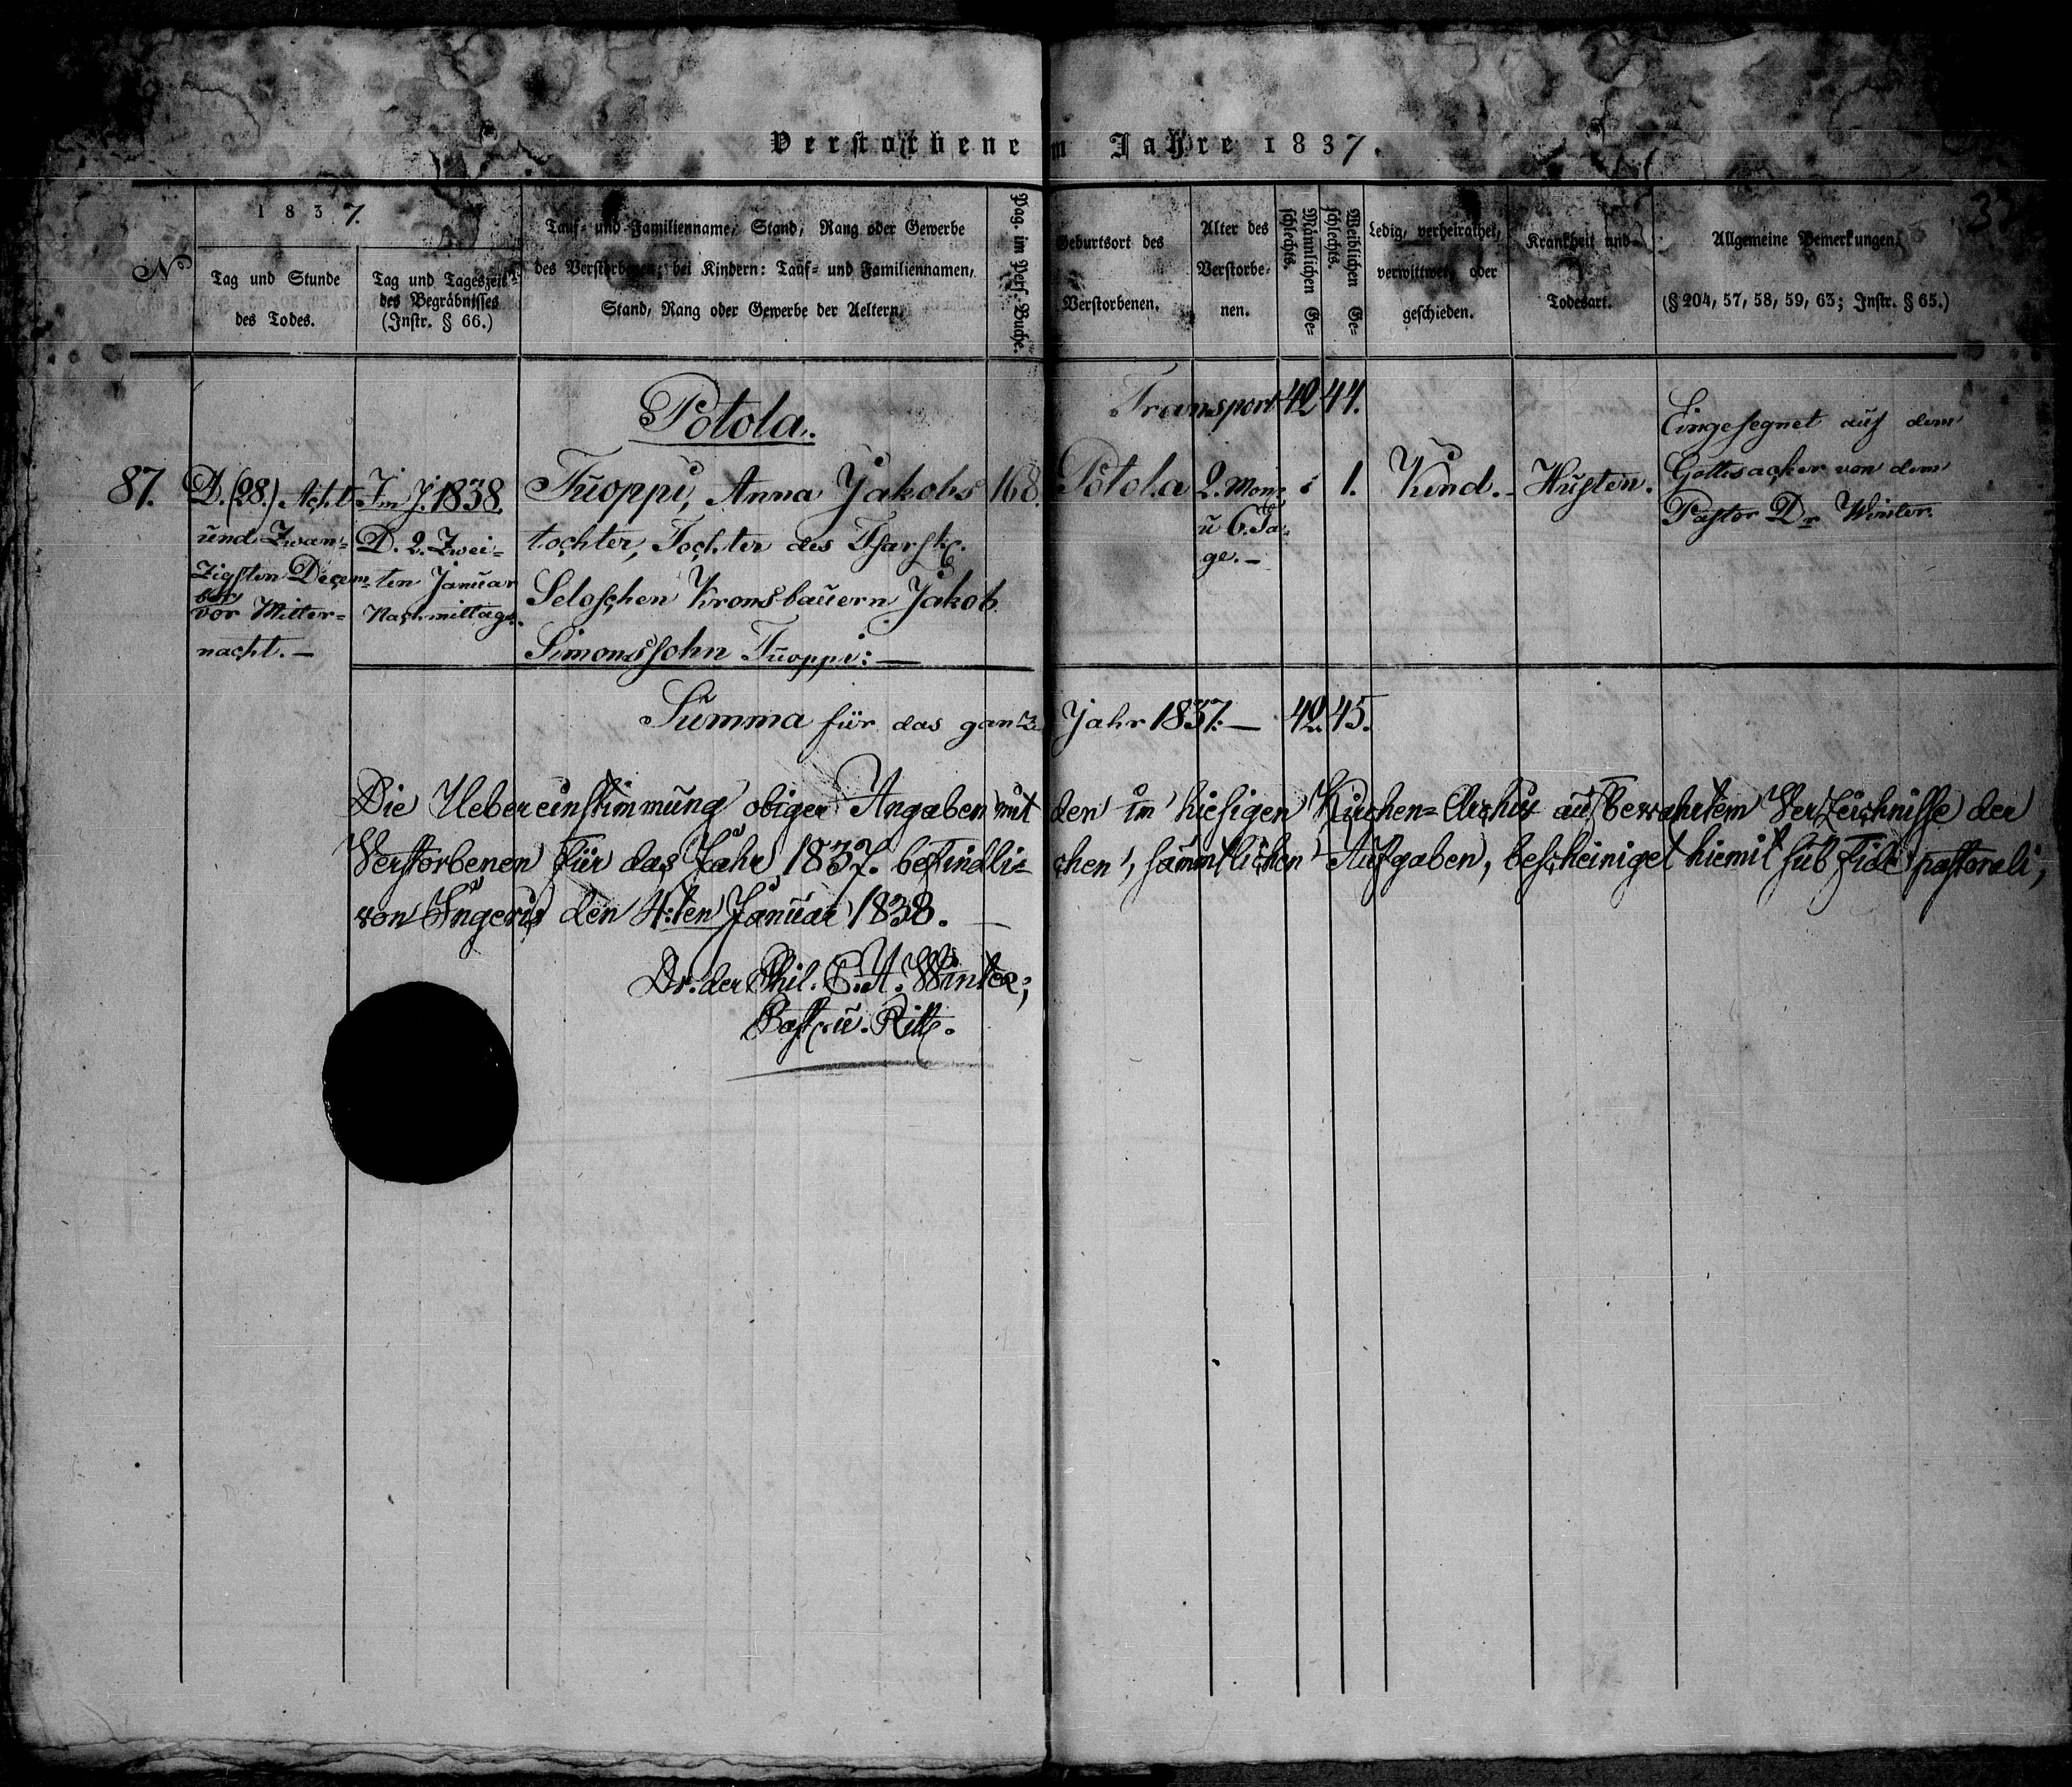 Verstorbene im Jahre 1837.
1837.
N
Tag und Stunde
des Todes.
Tag und Tageszeit
des Begräbnisses
(Instr. § 66.)
Tauf- und Familienname, Stand, Rang oder Gewerbe
des Verstorbenen; bei Kindern: Tauf- und Familiennamen,
Stand, Rang oder Gewerbe der Aeltern.
Pag. im Pers. Buche.
Geburtsort des
Verstorbenen.
Alter des
Verstorbe-
nen.
Männlichen Ge-
schlechts.
Weiblichen Ge-
schlechts.
Ledig, verheirathet,
verwittwet, oder
geschieden.
Krankheit und
Todesart.
Allgemeine Bemerkungen.
(§ 204, 57, 58, 59, 63; Instr. § 65.)
Potola.
Transport 42 44.
87.
D. (28.) Acht
und Zwan-
zigsten Decem-
ber
vor Mitter-
nacht. —
Im J. 1838.
D. 2. Zwei-
ten Januar
Nachmittags.
Tuoppi, Anna Jakobs
tochter, Tochter des Zarsk.
Seloschen Kronsbauern Jakob
Simonssohn Tuoppi: —
168.
Potola
2. Mon.
u 6. Ta-
ge. —
1.
Kind. -
Husten.
Eingesegnet auf dem
Gottesacker von dem
Pastor Dr Winter.
Summa für das ganze Jahr 1837. — 42. 45.
Die Uebereinstimmung obiger Angaben mit den im hiesigen Kirchen-Archiv aufbewahrtem Verzeichnisse der
Verstorbenen für das Jahr 1837. befindli-chen, sämmtlichen Aufgaben, bescheiniget hiemit sub fide pastorali,
von Ingeris den 4:ten Januar 1838. —
Dr. der Phil. C. A. Winter,
Past. u. Ritt.